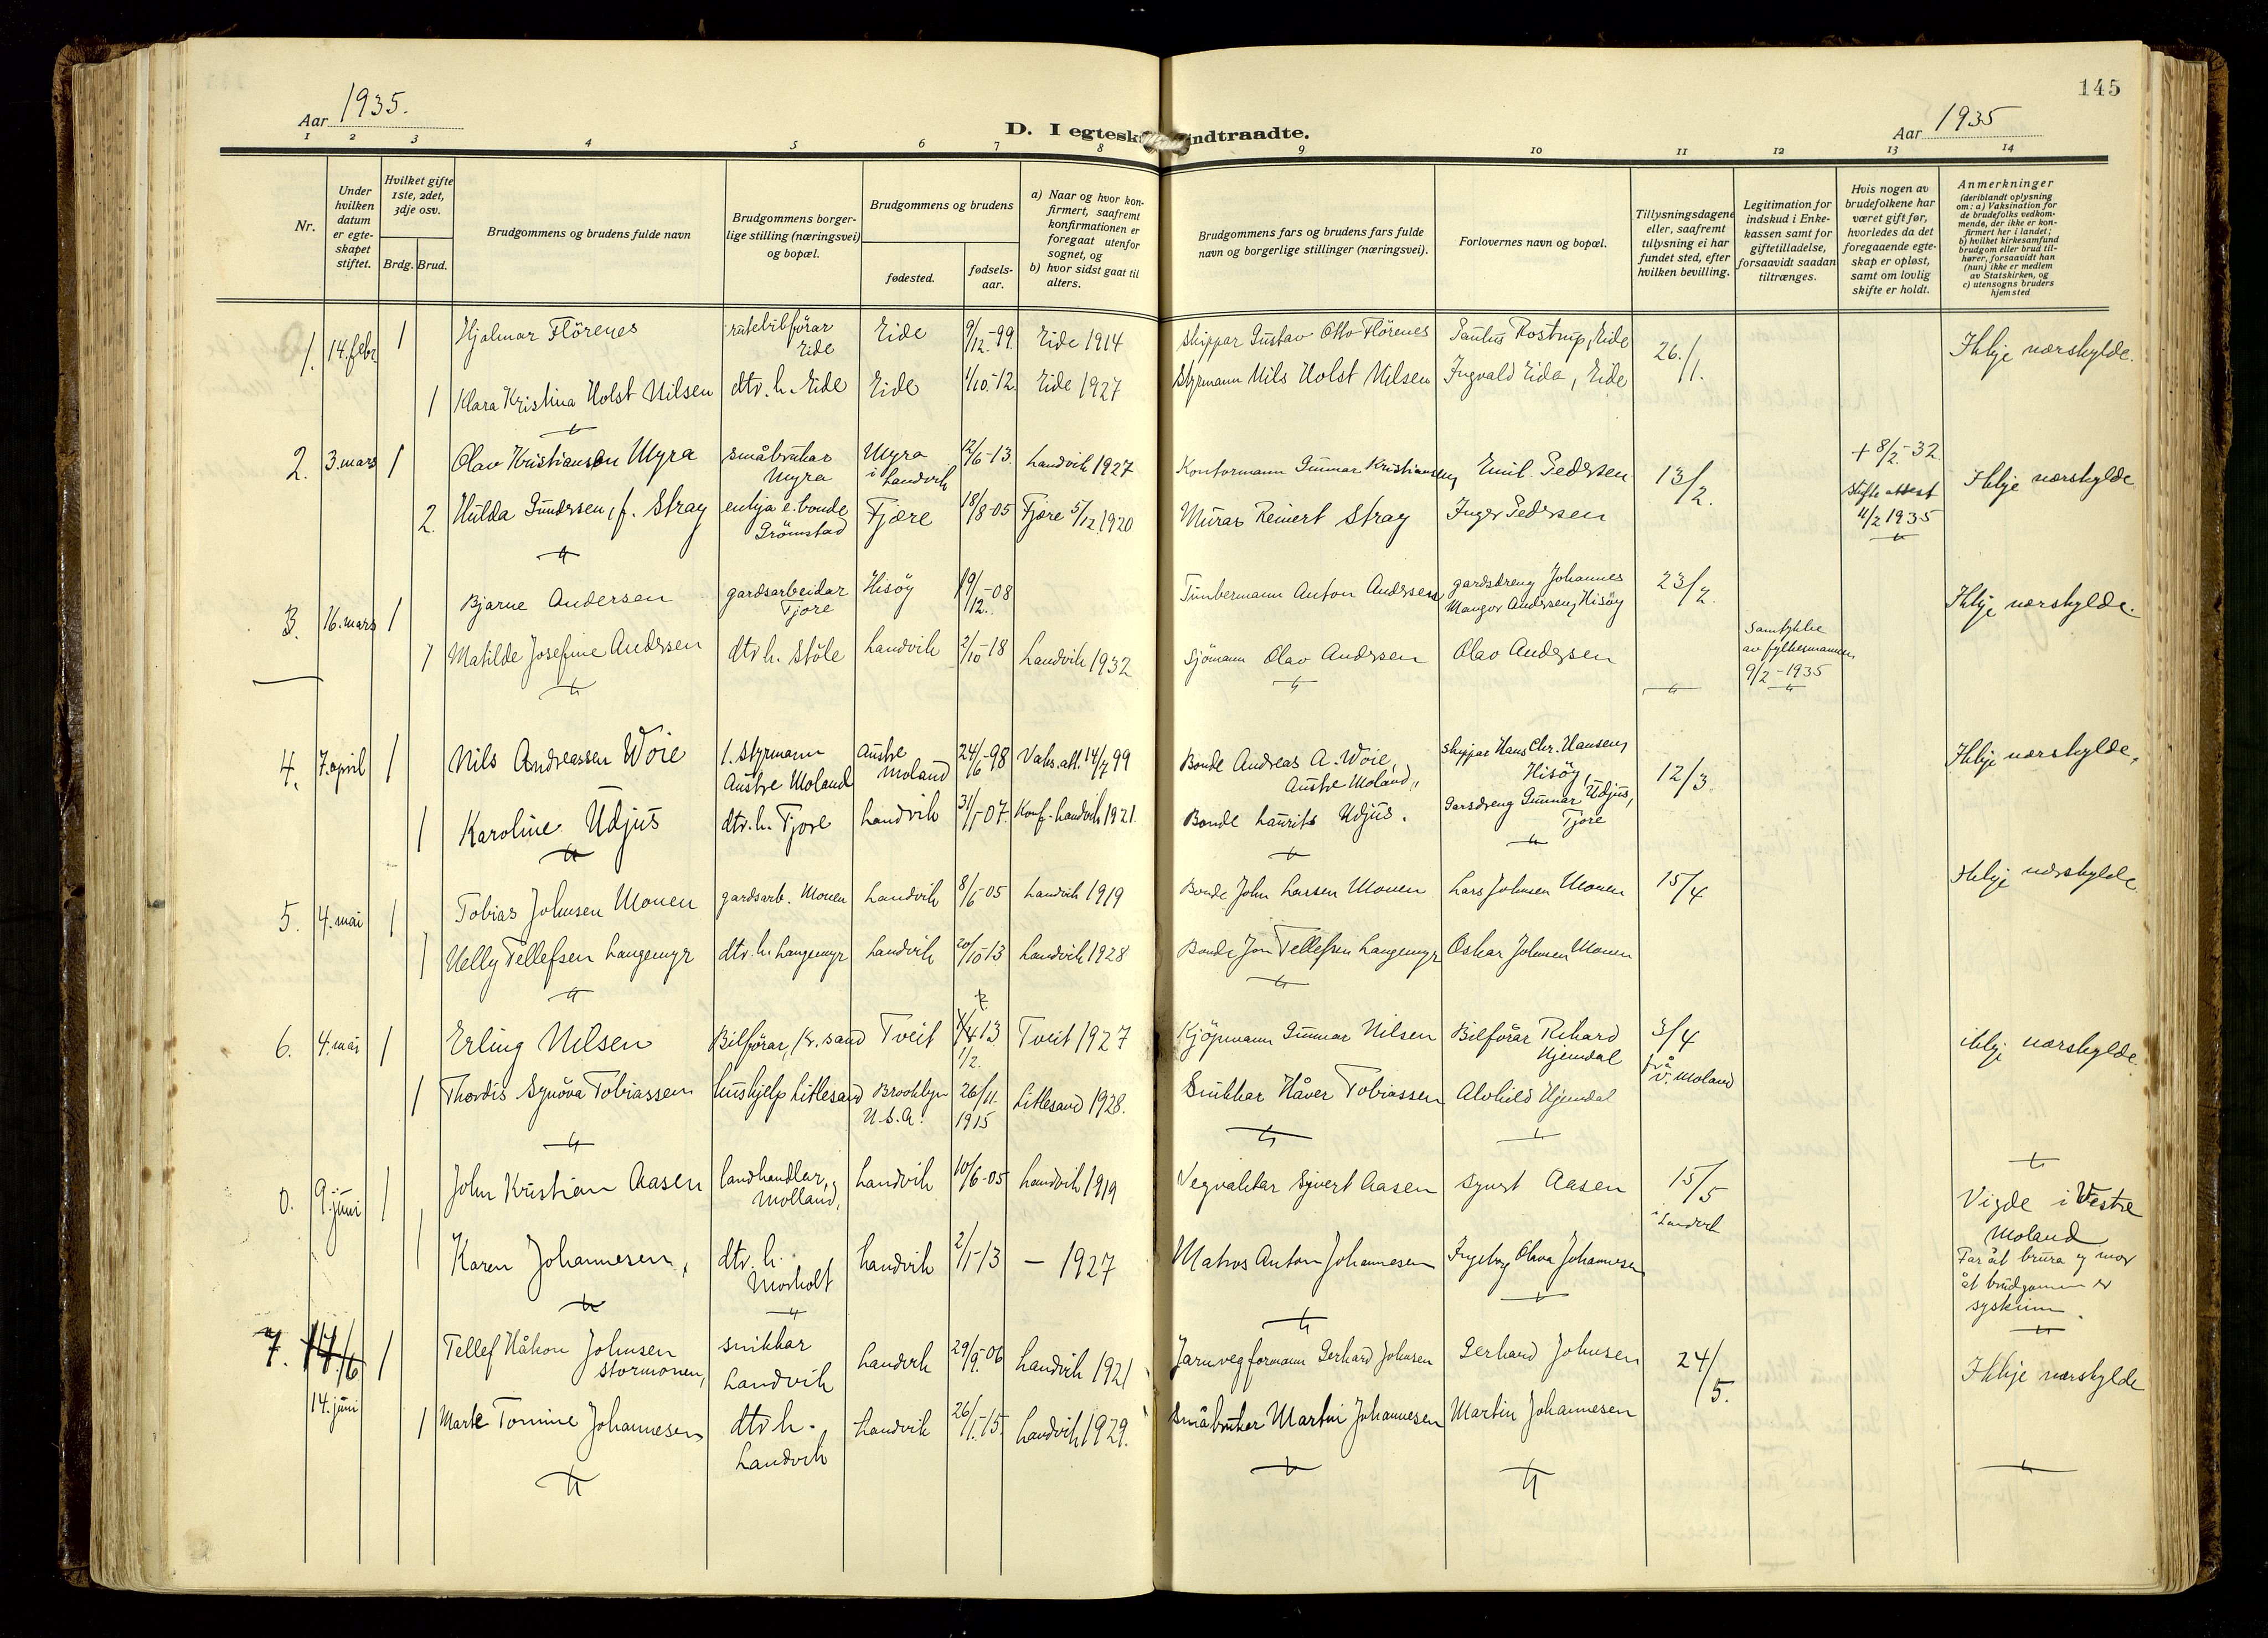 145
Aar 1935.
D. I egtesk indtraadte.
Aar 1935
1 2 3 4 5 6 7 8 9 10 11 12 13 14
Nr.
Under hvilken datum er egte-skapet stiftet.
Hvilket gifte 1ste, 2det, 3dje osv.
Brdg. Brud.
Brudgommens og brudens fulde navn
Brudgommens borger-lige stilling (næringsvei) og bopæl.
Brudgommens og brudens
fødested.
fødsels-aar.
a) Naar og hvor kon-firmert, saafremt konfirmationen er foregaat utenfor sognet, og
b) hvor sidst gaat til alters.
Brudgommens fars og brudens fars fulde navn og borgerlige stillinger (næringsvei).
Forlovernes navn og bopæl.
Tillysningsdagene eller, saafremt tillysning ei har fundet sted, efter hvilken bevilling.
Legitimation for indskud i Enke-kassen samt for giftetilladelse, forsaavidt saadan tiltrænges.
Hvis nogen av brudefolkene har været gift før, hvorledes da det foregaaende egte-skap er opløst, samt om lovlig skifte er holdt.
Anmerkninger (deriblandt oplysning om: a) Vaksination for de brudefolks vedkom-mende, der ikke er kon-firmert her i landet; b) hvilket kirkesamfund brudgom eller brud til-hører, forsaavidt han (hun) ikke er medlem av Statskirken, og c) utensogns bruders hjemsted
1. 14. febr. 1 Hjalmar Flörenes rutebilförar Eide Eide 9/12.-99. Eide 1914 Skippar Gustav Otto Flörenes Rostrup, Eide 26./1. Ikkje nærskylde.
1 Klara Kristina Holst Nilsen dtr. h. Eide Eide 4/10.-12. Eide 1927 Styrmann Nils Holst Nilsen Ingvald Eide, Eide
2. 3. mars 1 Olav Kristiansen Myra småbrukar Myra Myra i Landvik 12/6-13. Landvik 1927 Kontormann Gunnar Kristiansen, Emil Pedersen 13/2. + 8/2.-32. Ikkje nærskylde
2. Hulda Gundersen, f. Stray enkja e. bonde Grömstad Fjære 18/8-05 Fjære 5/12 1920 Murar Reinert Stray Inger Pedersen Skifte attest 11/2 1935
3. 16. mars 1 Bjarne Andersen gardsarbeidar Tjore Hisöy 19/12.-08 Timbermann Anton Andersen gardsdreng Johannes Mangor Andersen, Hisöy 23/2. Ikkje nærskylde.
1 Matilde Josefine Andersen dtr. h. Stöle Landvik 2/10-18 Landvik 1932 Sjömann Olav Andersen Olav Andersen Samtykke av fylkesmannen 9/2-1935
4. 7. april 1 Nils Andreassen Woie 1. Styrmann Austre Moland Austre Moland 24/6-98 Vaks. att. 14/7 99 Bonde Andreas A. Woie, Austre Moland, skippar Hans Chr. Hansen, Hisöy, 12/3. Ikkje nærskylde,
1 Karoline Udjus dtr. h. Tjore Landvik 31/1-07. Konf. Landvik 1921. Bonde Laurits Udjus. Garsdreng Gunnar Udjus, Tjore
5. 4. mai 1 Tobias Johnsen Monen gardsarb. Monen Landvik 8/6 05 Landvik 1919 Bonde John Larsen Monen Lars Johnsen Monen 15/4 Ikkje nærskylde.
1 Nelly Tellefsen Langemyr dtr. h. Langemyr Landvik 20/10 13 Landvik 1928 Bonde Jon Tellefsen Langemyr Oskar Johnsen Monen
6. 4. mai 1 Erling Nilsen Bilförar, Kr. sand Tveit 1/2. 13. Tveit 1927 Kjöpmann Gunnar Nilsen Bilförar Rikard Hjemdal 3/4 frå V. Moland ikkje nærskylde.
1 Thordis Synöva Tobiassen hushjelp Lillesand Brooklyn U.S.A. 26/11. 1915 Lillesand 1928. Snikkar Håver Tobiassen Alvhild Hjemdal
0. 9. juni 1 John Kristian Aasen landhandlar, Molland, Landvik 10/6-05 Landvik 1919 Vegvaktar Syvert Aasen Syvert Aasen 15/5 i Landvik Vigde i Vestre Moland
1 Karen Johannesen, dtr. h. Morholt Landvik 2/1-13 — 1927 Matros Anton Johannesen Ingeborg Olava Johannesen Far åt brura og mor åt brudgomen er syskinn.
7. 14./6 1 Tellef Håkon Johnsen Stormonen, snikkar Landvik Landvik 29/9.-06 Landvik 1921 Jarnvegformann Gerhard Johnsen Gerhard Johnsen 24/5. Ikkje nærskylde
14. juni 1 Marte Tomine Johannesen dtr h. Landvik Landvik 26/1.-15. Landvik 1929. Småbruker Martin Johannesen Martin Johannesen